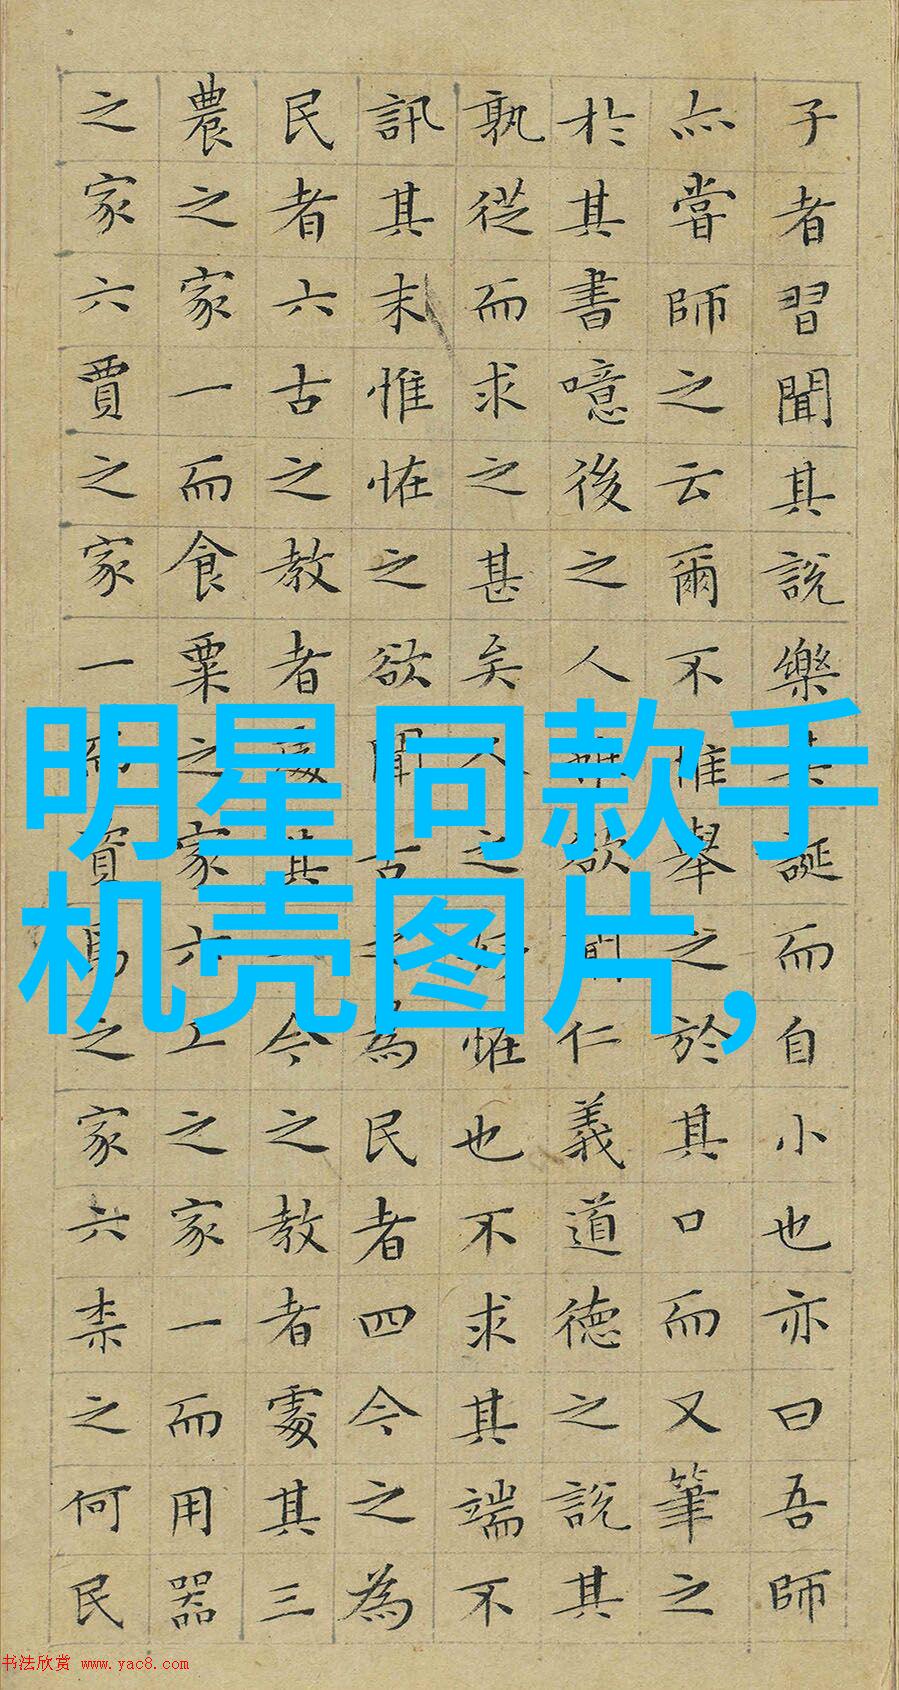 子者習聞其說樂其誕而自小也亦曰吾師
亦嘗師之云爾不惟舉之於其口而又筆之
於其書噫後之人雖欲聞仁義道德之說其
孰從而求之甚矣人之好恠也不求其端不
訊其末惟恠之欲聞古之為民者四今之為
民者六古之教者處其一今之教者處其三
農之家一而食粟之家六工之家一而用器
之家六賈之家一而資焉之家六柰之何民
明星同款手
机壳图片,
书法欣赏 www.yac8.com